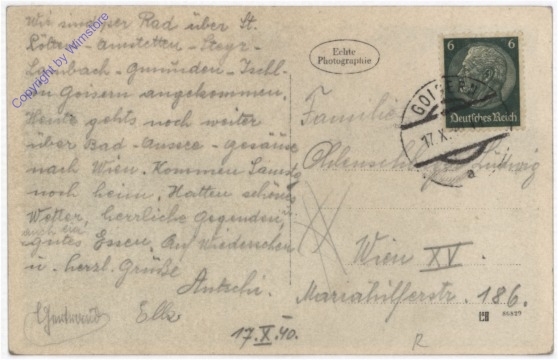 Wir sind per Rad über St.
Pölten - Amstetten - Steyr -
Lambach - Gmunden - Ischl
in Goisern angekommen.
Heute gehts noch weiter
über Bad-Aussee - Gesäuse
nach Wien. Kommen Samstag
noch heim. Hatten schönes
Wetter, herrliche Gegenden,
auch ein
gutes Essen. Auf Wiedersehen
u. herzl. Grüße
Antschi.
Ella
17.X.40.
Copyright by Wimstore
Echte
Photographie
6 6
Deutsches Reich
GOISERN
17.X.
a
Familie
Ludwig
Wien XV.
Mariahilferstr. 186.
R